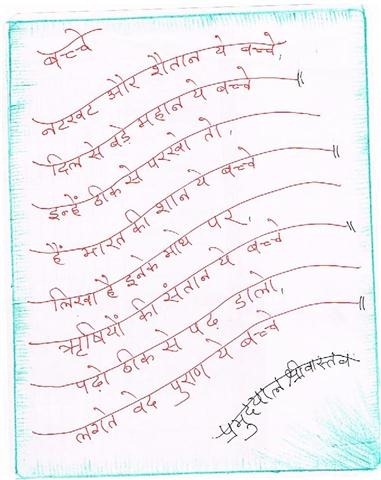 बच्चे
नटखट और शैतान ये बच्चे,
दिल से बड़े महान ये बच्चे॥
इन्हें ठीक से परखो तो,
हैं भारत की शान ये बच्चे॥
लिखा है इनके माथे पर,
ऋषियों की संतान ये बच्चे॥
पढ़ो ठीक से पढ़ डालो,
लगते वेद पुराण ये बच्चे॥
प्रभुदयाल श्रीवास्तव